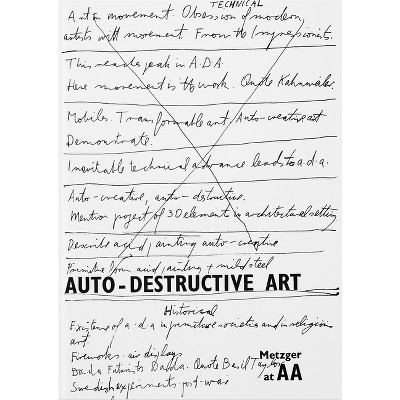 TECHNICAL
Art on movement. Obsession of modern
artists with movement. From the Impressionists.
This reaches peak in A.D.A.
Here movement is the work. Quote Kahnweiler.
Mobiles. Transformable art, Auto-creative art
Demonstrate.
Inevitable technical advance leads to a.d.a.
Auto-creative, auto-destructive.
Mention project of 3D element in architectural setting
Describe acid painting auto-creative
Primitive form acid painting + mild steel
AUTO-DESTRUCTIVE ART
Historical
Existence of a.d.a in primitive societies and in religious
art
Fireworks. air displays
Futurists Dada. Quote Basil Taylor
Swedish experiments post-war
Metzger
at AA